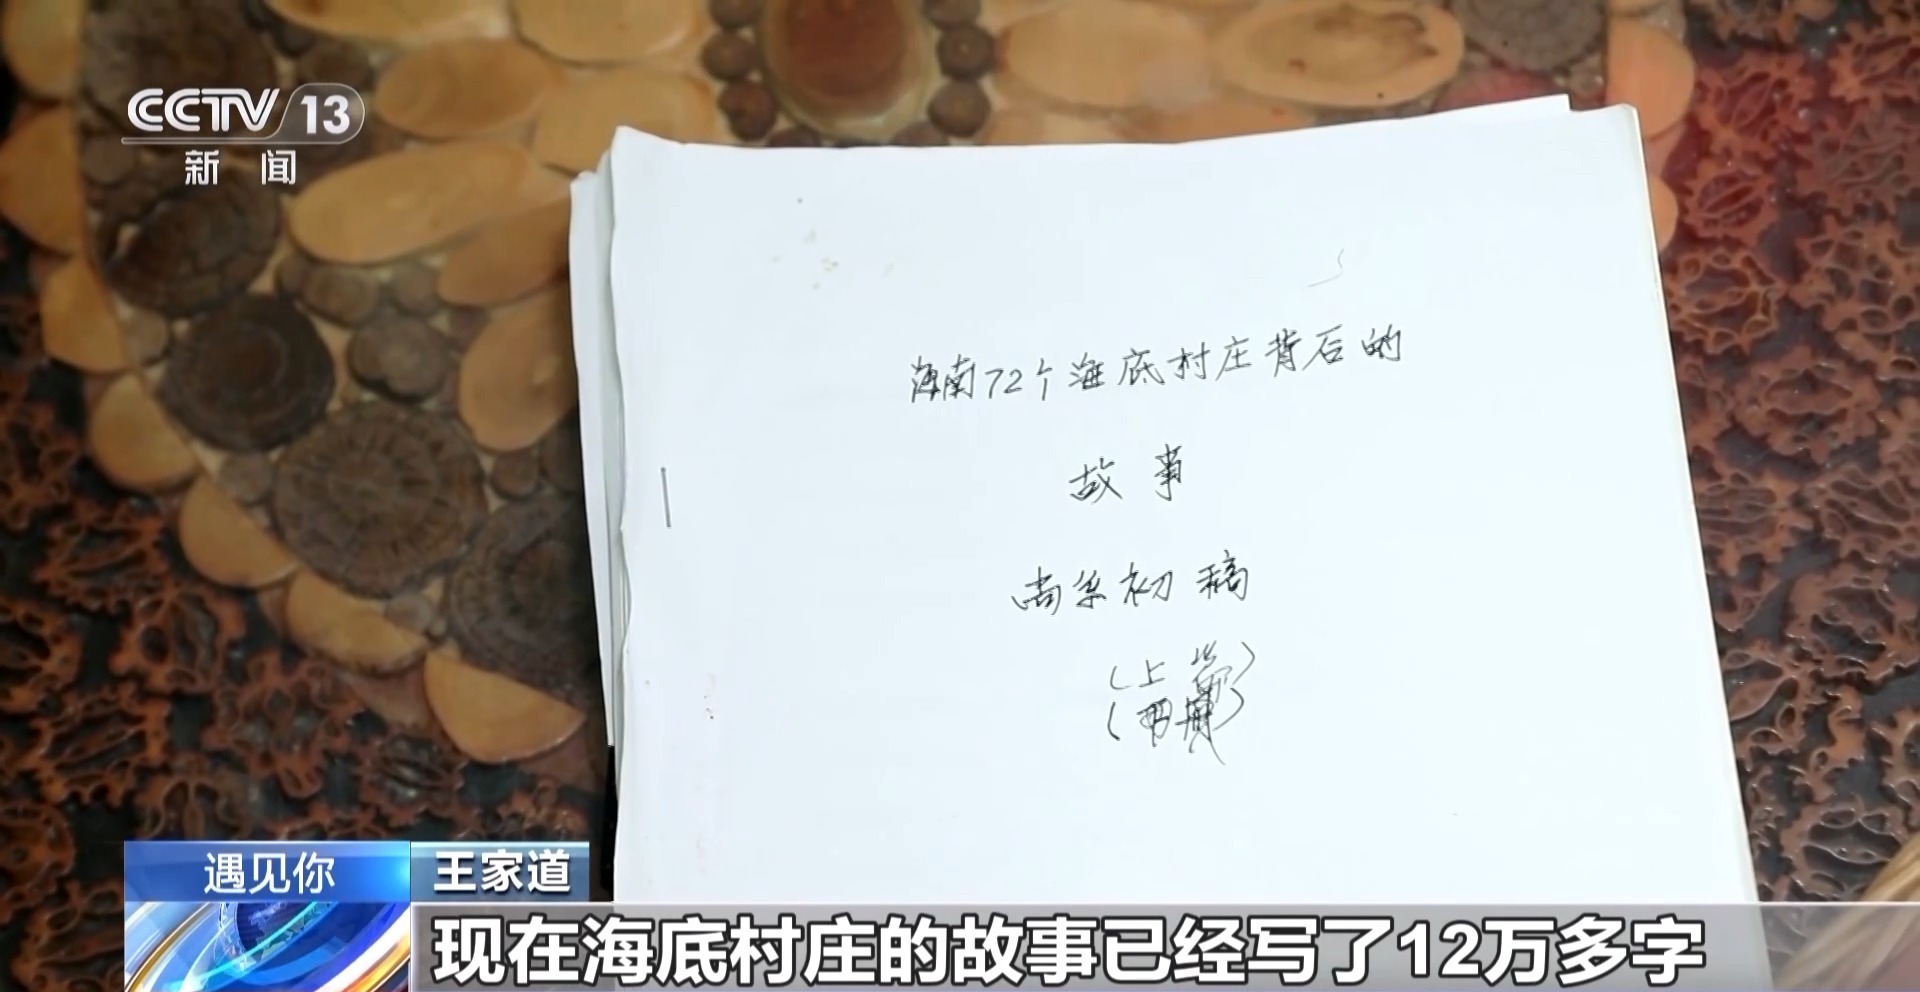 CCTV 13
新闻
海南72个海底村庄背后的
故事
初稿
(上
遇见你
王家道
现在海底村庄的故事已经写了12万多字